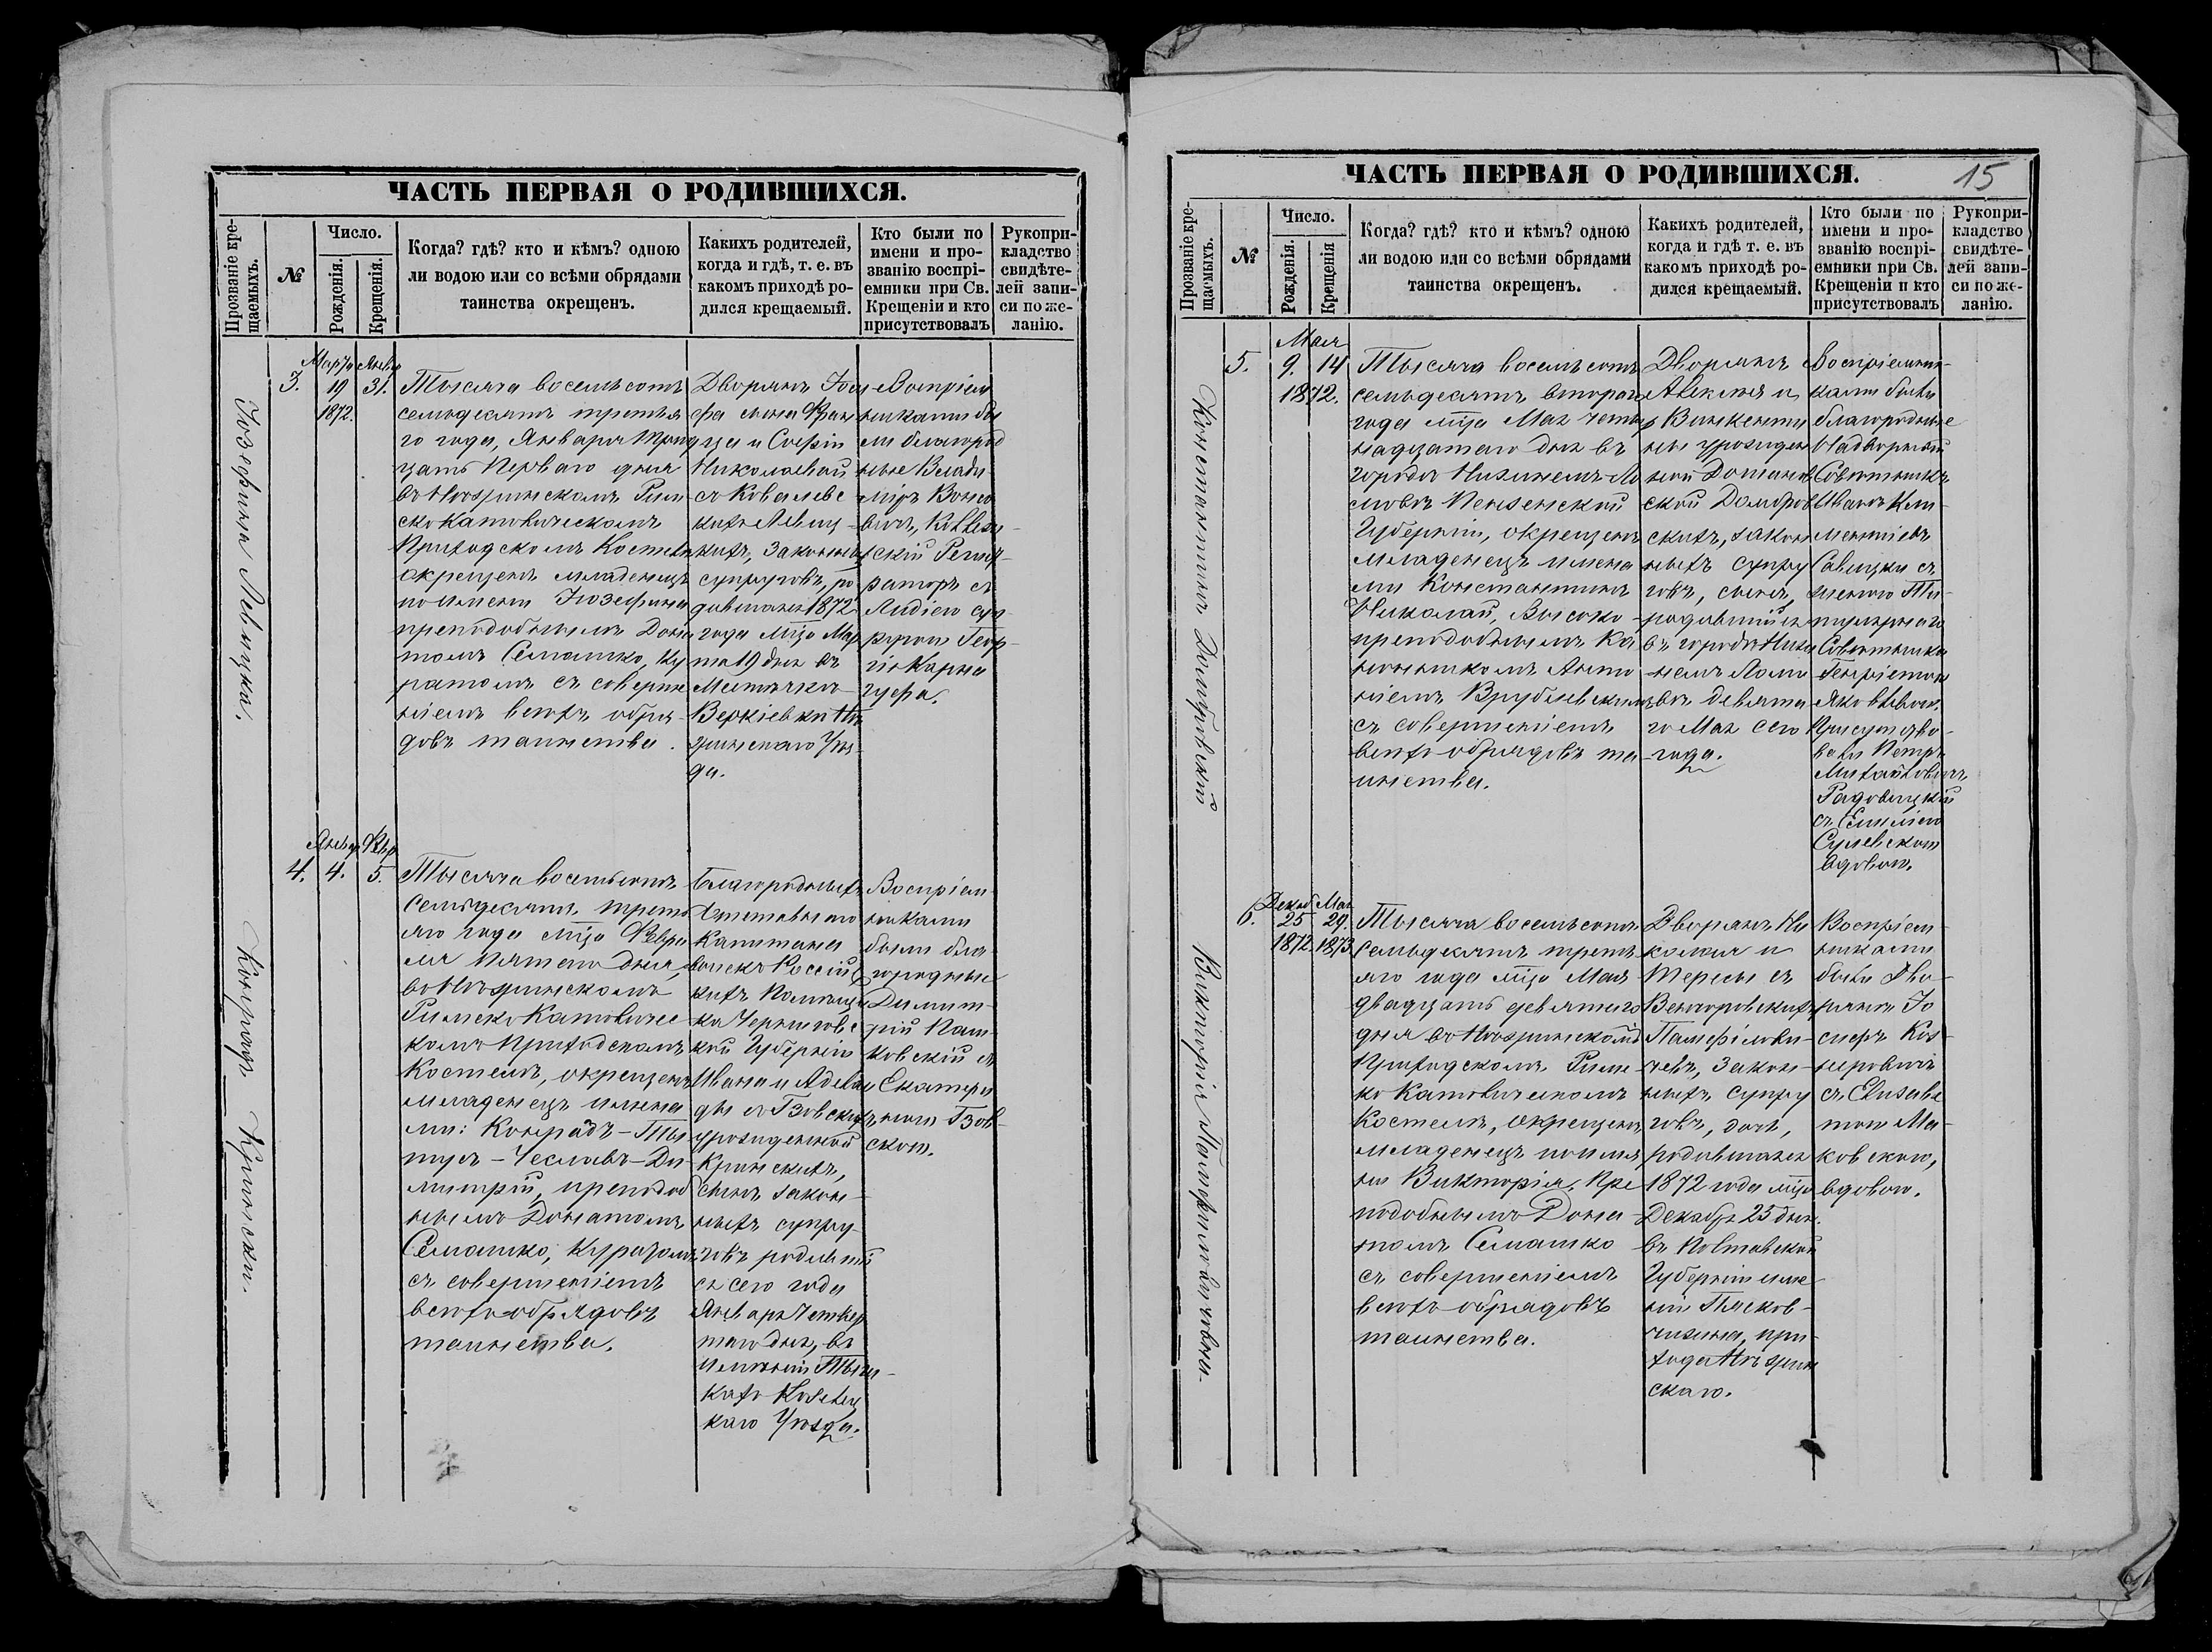 ЧАСТЬ ПЕРВАЯ О РОДИВШИХСЯ.
Прозваніе кре-
щаемыхъ.
№
Число.
Рожденія.
Крещенія.
Когда? гдѣ? кто и кѣмъ? одною
ли водою или со всѣми обрядами
таинства окрещенъ.
Какихъ родителей,
когда и гдѣ, т. е. въ
какомъ приходѣ ро-
дился крещаемый.
Кто были по
имени и про-
званію воспрі-
емники при Св.
Крещеніи и кто
присутствовалъ
Рукопри-
кладство
свидѣте-
лей запи-
си по же-
ланію.
Іозефина Левицка.
3.
Марта
19
1872.
Январ
31.
Тысяча восемьсотъ
семьдесятъ третья
го года, Января трид
цать перваго дня
въ Нѣжинскомъ Рим
скокатолическомъ
Приходскомъ Костелѣ
окрещенъ младенецъ
по имени Іозефина
преподобнымъ Дона
томъ Семашко, Ку
ратомъ съ соверше
ніемъ всѣхъ обря-
довъ таинства.
Дворянъ Іоси
фа сына Фран
ца и Софіи
Николаевой
съ Ковалевс
кихъ Левиц-
кихъ, законны
супруговъ, ро
дившаяся 1872
года м̃ца Мар
та 19 дня въ
Мѣстечкѣ
Веркіевкѣ Нѣ
жинскаго Уѣз-
да.
Воспріем
никами бы
ли благород
ные Влади
міръ
Коллеж-
скій Регист-
раторъ съ
Лидіею суп-
ругою Геор-
гія Карна
уха.
Конрадъ Кринскій.
4.
Январ
4.
Февр
5.
Тысяча восемьсотъ
семьдесятъ треть
яго года м̃ца Февра
ля пятаго дня,
въ Нѣжинскомъ
Римско Католичес
комъ Приходскомъ
Костелѣ, окрещенъ
младенецъ имена
ми: Конрадъ-Ти
тусъ-Чеславъ-Ди
митрій, преподоб
нымъ Донатомъ
Семашко, Куратомъ
съ совершеніемъ
всѣхъ обрядовъ
таинства.
Благородныхъ
Отставнаго
Капитана
войскъ Россійс
кихъ Помѣщи
ка Черниговс
кой Губерніи
Ивана и Аделаи
ды съ Гзовскихъ
урожденной
Кринскихъ,
сынъ закон-
ныхъ супру-
говъ родивший
ся сего года
Января четвер
таго дня, въ
имѣніи
Козелец
каго Уѣзда.
Воспріем-
никами
были бла
городные
Димит-
рій Паш-
ковскій съ
Екатери
ною Гзов-
скою.
ЧАСТЬ ПЕРВАЯ О РОДИВШИХСЯ.
15
Прозваніе кре-
щаемыхъ.
№
Число.
Рожденія.
Крещенія
Когда? гдѣ? кто и кѣмъ? одною
ли водою или со всѣми обрядами
таинства окрещенъ.
Какихъ родителей,
когда и гдѣ т. е. въ
какомъ приходѣ ро-
дился крещаемый.
Кто были по
имени и про-
званію воспрі-
емники при Св.
Крещеніи и кто
присутствовалъ
Рукопри-
кладство
свидѣте-
лей запи-
си по же-
ланію.
Константинъ Домбровскій
5.
Мая
9. 14
1872.
Тысяча восемьсотъ
семьдесятъ втораго
года м̃ца Мая четыр
надцатаго дня въ
городѣ Нижнемъ-Ло
мовѣ Пензенской
Губерніи, окрещенъ
младенецъ имена
ми Константинъ
Николай, Высоко-
преподобнымъ Ка
нонникомъ Анто
ніемъ Врублевскимъ
съ совершеніемъ
всѣхъ обрядовъ та
инства.
Дворянъ
Алексѣя и
Викенти
ны урожден
ной
ской Домбров
скихъ, закон
ныхъ супру
говъ, сынъ,
родившійся
въ городѣ Ниж
немъ Ломо
вѣ девята
го Мая сего
года.
Воспріемни-
ками были
благородные
Надворный
Совѣтникъ
Иванъ Кли-
ментіевъ
Савицкій съ
женою Ти-
тулярнаго
Совѣтника
Генріетою
Яковлевою.
Присутство-
валъ Петръ
Михайловичъ
Радовицкій
съ Емиліею
Сулевскою
вдовою.
Викторія Панфиловичова.
6.
Декаб
25
1872.
Мая
29.
1873
Тысяча восемьсотъ
семьдесятъ треть
яго года м̃ца Мая
двадцать девятаго
дня въ Нѣжинскомъ
Приходскомъ Римс
ко Католическомъ
Костелѣ, окрещенъ
младенецъ по име
ни Викторія. Пре
подобнымъ Дона
томъ Семашко
съ совершеніемъ
всѣхъ обрядовъ
таинства.
Дворянъ Ни
колая и
Терезы съ
Венгоровскихъ
Панфилови-
чевъ, закон-
ныхъ супру
говъ, дочь,
родившаяся
1872 года м̃ца
Декабря 25 дня.
въ Полтавской
Губерніи име
ніи Писков-
чизна, при-
хода Нѣжин
скаго.
Воспріем
никами
были Дво-
рянинъ Іо
сифъ Коз-
неровичъ
съ Елизаве
тою Ма-
ковскою,
вдовою.